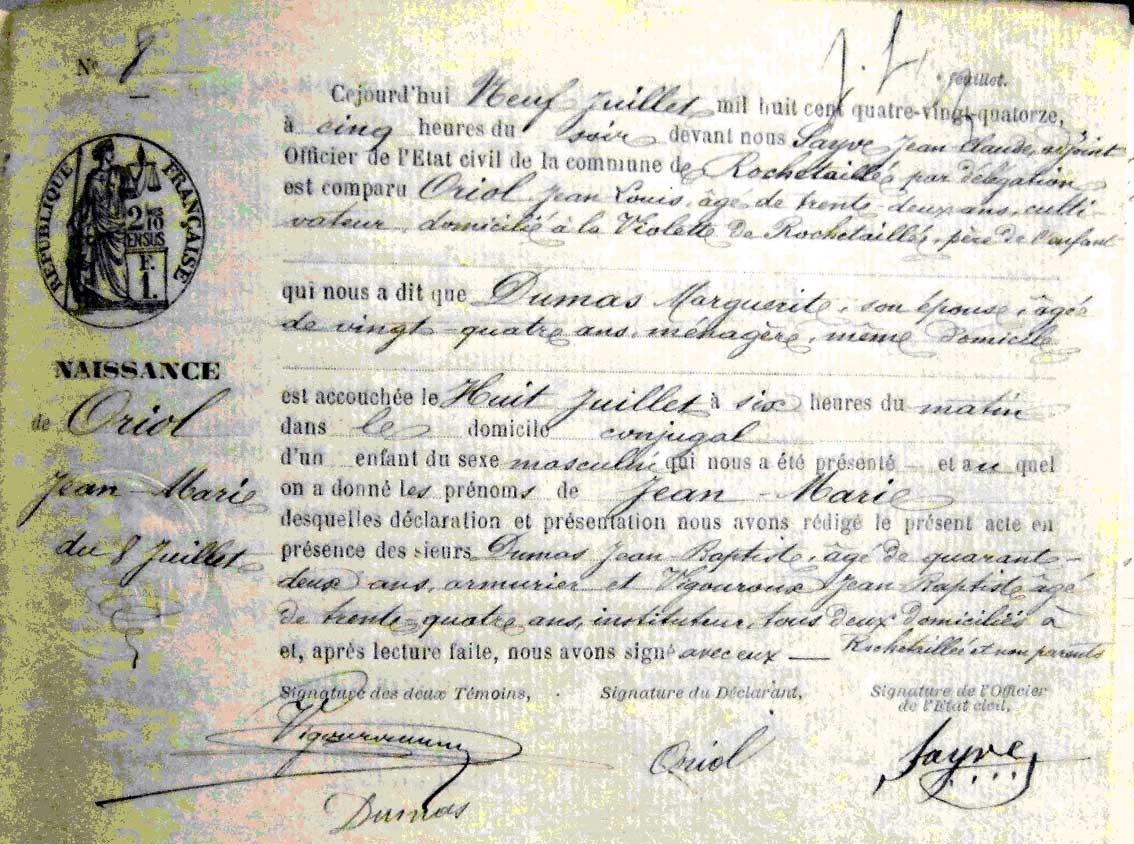 N° 8
feuillet.
Cejourd'hui Neuf Juillet mil huit cent quatre-vingt-quatorze,
à cinq heures du soir devant nous Sayve Jean-Claude, adjoint
Officier de l'Etat civil de la commune de Rochetaillée par délégation
est comparu Oriol Jean Louis, âgé de trente-deux ans, culti-
vateur, domicilié à la Violette de Rochetaillée, père de l'enfant
qui nous a dit que Dumas Marguerite, son épouse, âgée
de vingt-quatre ans, ménagère, même domicile
est accouchée le Huit Juillet à six heures du matin
dans le domicile conjugal
d'un enfant du sexe masculin qui nous a été présenté – et au quel
on a donné les prénoms de Jean-Marie
desquelles déclaration et présentation nous avons rédigé le présent acte en
présence des sieurs Dumas Jean-Baptiste, âgé de quarante-
deux ans, armurier et Vigouroux Jean Baptiste âgé
de trente-quatre ans, instituteur, tous deux domiciliés à
Rochetaillée et non parents
et, après lecture faite, nous avons signé avec eux —
Signature des deux Témoins,
Signature du Déclarant,
Signature de l'Officier
de l'Etat civil,
Vigouroux
Dumas
Oriol
Sayve
RÉPUBLIQUE FRANÇAISE
2/10
EN SUS
F.
1.
NAISSANCE
de Oriol
Jean-Marie
du 8 Juillet